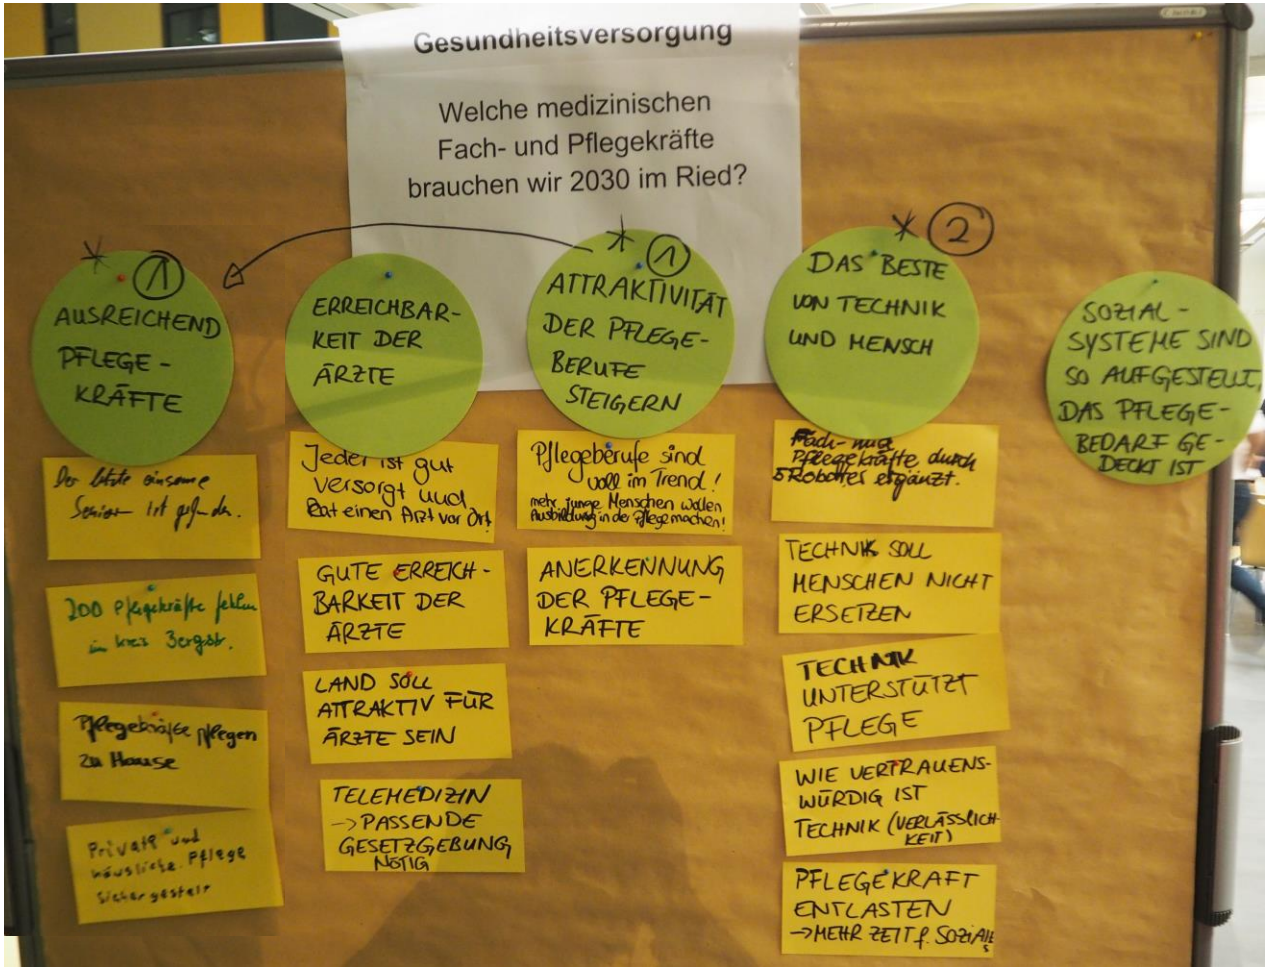 Gesundheitsversorgung
Welche medizinischen
Fach- und Pflegekräfte
brauchen wir 2030 im Ried?
* 1
AUSREICHEND
PFLEGE-
KRÄFTE
Der letzte einsame
Senior ist gefunden.
200 Pflegekräfte fehlen
im Kreis Bergstr.
Pflegekräfte pflegen
zu Hause
Private und
häusliche Pflege
sichergestellt
ERREICHBAR-
KEIT DER
ÄRZTE
Jeder ist gut
versorgt und
hat einen Arzt vor Ort
GUTE ERREICH-
BARKEIT DER
ÄRZTE
LAND SOLL
ATTRAKTIV FÜR
ÄRZTE SEIN
TELEMEDIZIN
→ PASSENDE
GESETZGEBUNG
NÖTIG
* 1
ATTRAKTIVITÄT
DER PFLEGE-
BERUFE
STEIGERN
Pflegeberufe sind
voll im Trend!
mehr junge Menschen wollen
Ausbildung in der Pflege machen!
ANERKENNUNG
DER PFLEGE-
KRÄFTE
* 2
DAS BESTE
VON TECHNIK
UND MENSCH
Fach- und
Pflegekräfte durch
Roboter ergänzt.
TECHNIK SOLL
MENSCHEN NICHT
ERSETZEN
TECHNIK
UNTERSTÜTZT
PFLEGE
WIE VERTRAUENS-
WÜRDIG IST
TECHNIK (VERLÄSSLICH-
KEIT)
PFLEGEKRAFT
ENTLASTEN
→ MEHR ZEIT f. SOZIALES
SOZIAL-
SYSTEME SIND
SO AUFGESTELLT,
DAS PFLEGE-
BEDARF GE-
DECKT IST